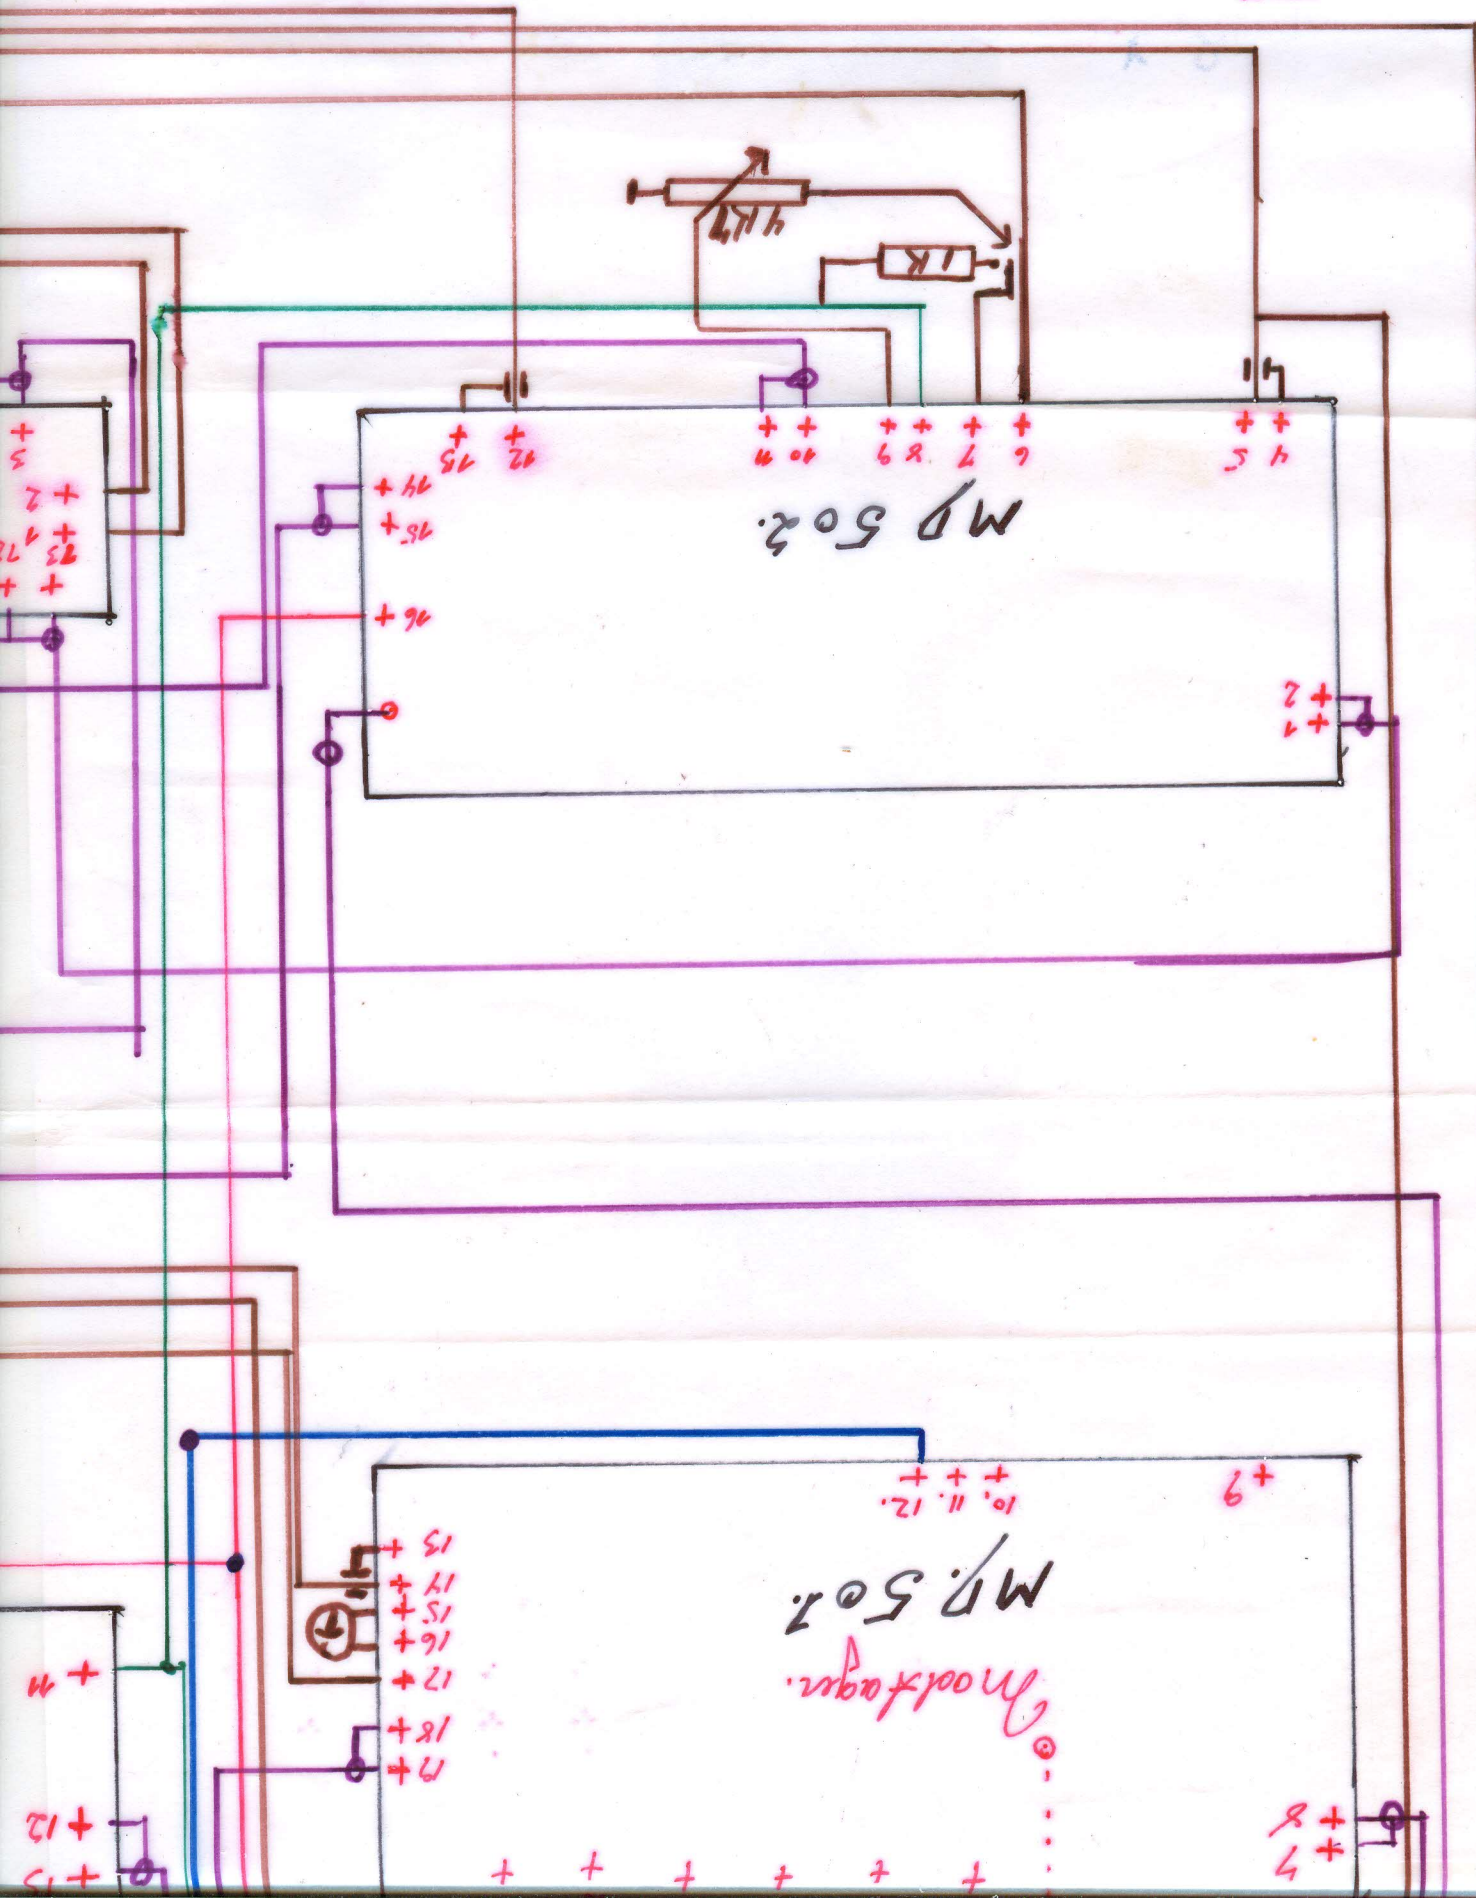 4K7
1K
+ 3
+ 2
+ 1
+ 13
+ 12
+ 13
+ 12
+ 11
+ 10
+ 9
+ 8
+ 7
+ 6
+ 5
+ 4
+ 14
+ 15
+ 16
MD 502.
+ 2
+ 1
+ 12.
+ 11.
+ 10.
+ 9
+ 13
+ 14
+ 15
+ 16
+ 17
+ 18
+ 19
MD. 501.
Modtager.
+ 8
+ 7
+ 11
+ 12
+ 13
+ + + + + +